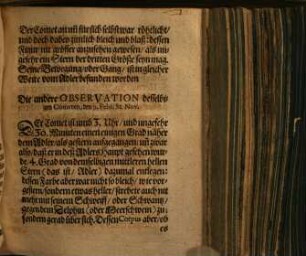 Der Comet an sich für sich selbst war röhelicht/
und doch dabey zimlich bleich und blaß/ dessen
nicht grösser anzusehen gewesen/ als un-
gefehr ein Stern der dritten Grösse seyn mag.
Seine Bewegung/ oder Gang/ ist in gleicher
Weite vom Adler befunden worden
Die andere OBSERVATION desselbi-
gen Cometen, den 9. Febr. St. Nov.
Der Comet ist umb 3. Uhr/ und ungefehr
30. Minuten einen einigen Grad näher
dem Adler/ als gestern aufgegangen: und zwar
also/ daß er in deß Adlers Haupt gesehen wur-
de. 4. Grad von dem selbigen mittleren hellen
Stern (das ist/ Adler) dazumal entlegen:
dessen Farbe aber war nicht so bleich/ wie vor-
gestern/ sondern etwas heller/ strebete auch mit
mehr mit seinem Schweiff/ oder Schwantz/
gegen dem Delphin (oder Meerschwein) zu/
sondern gerad über sich. Dessen Corpus aber/ ob
es